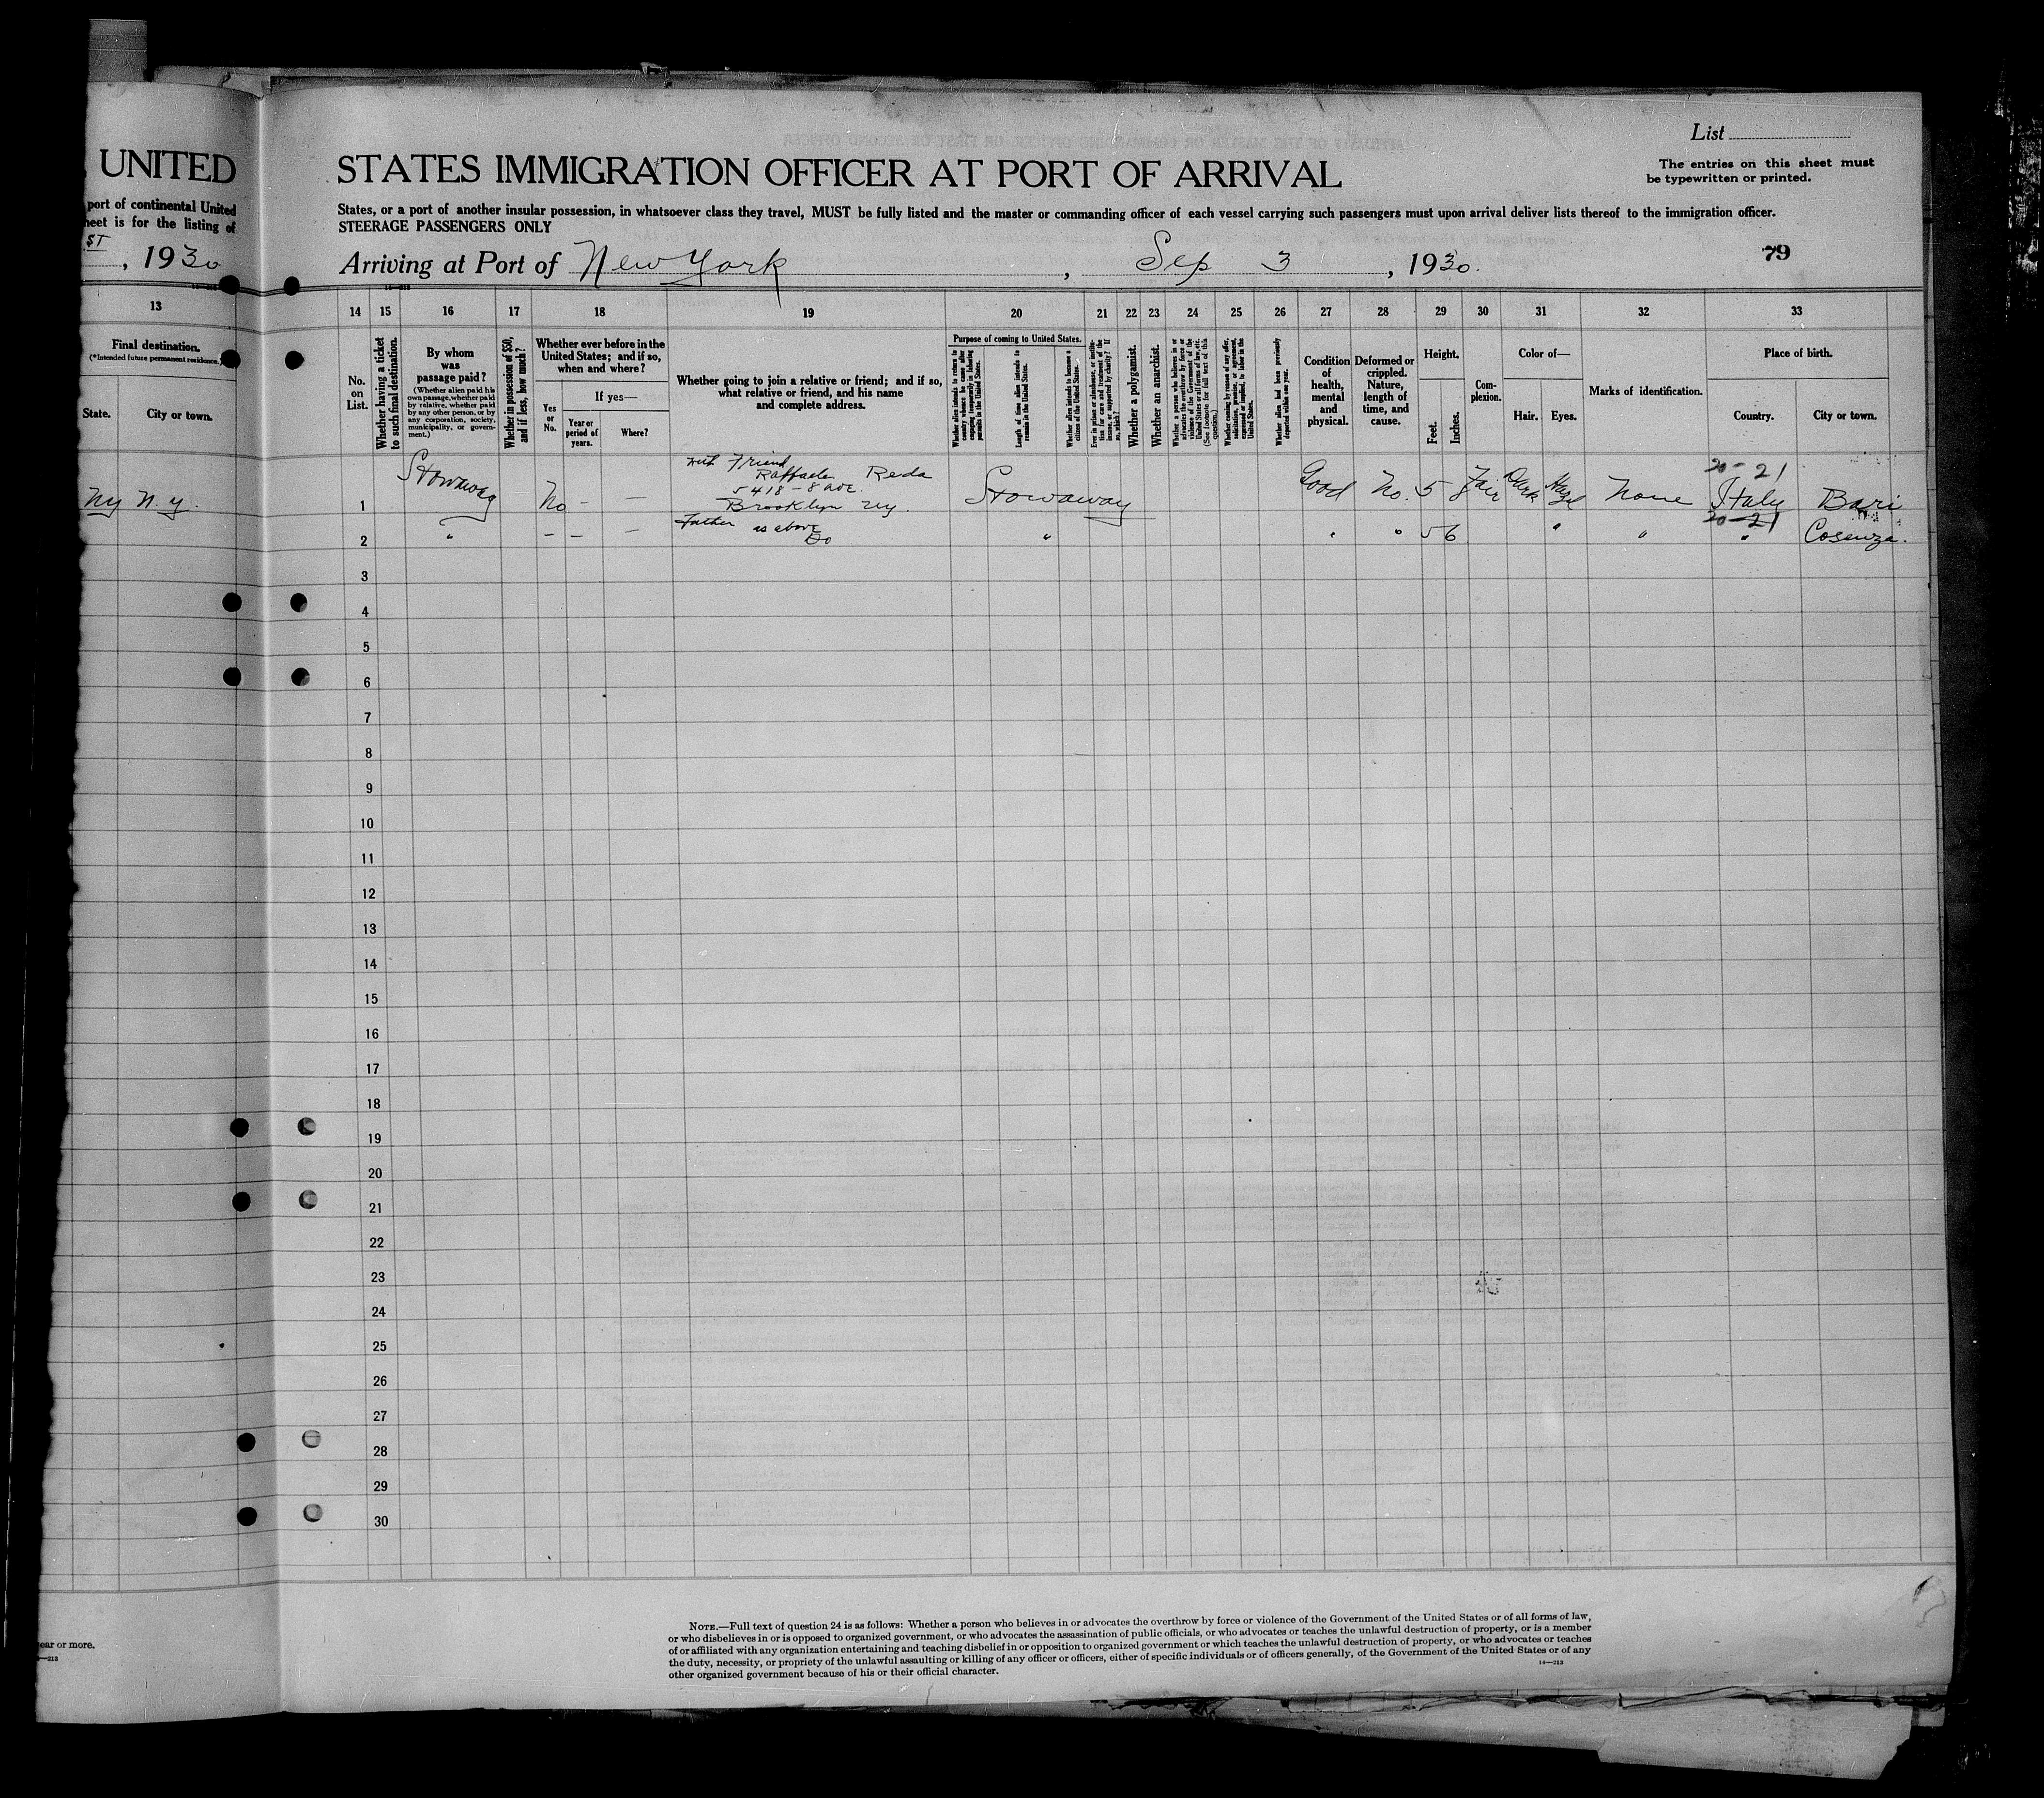 UNITED
port of continental United
heet is for the listing of
ST, 1930
13
Final destination.
(*Intended future permanent residence.)
State. City or town.
NY N.Y.
ear or more.
List
The entries on this sheet must
be typewritten or printed.
STATES IMMIGRATION OFFICER AT PORT OF ARRIVAL
States, or a port of another insular possession, in whatsoever class they travel, MUST be fully listed and the master or commanding officer of each vessel carrying such passengers must upon arrival deliver lists thereof to the immigration officer.
STEERAGE PASSENGERS ONLY
Arriving at Port of New York, Sep 3, 1930. 79
14 15 16 17 18 19 20 21 22 23 24 25 26 27 28 29 30 31 32 33
No. on List.
Whether having a ticket to such final destination.
By whom was passage paid?
(Whether alien paid his own passage, whether paid by relative, whether paid by any other person, or by any corporation, society, municipality, or government.)
Whether in possession of $50, and if less, how much?
Whether ever before in the United States; and if so, when and where?
Yes or No.
If yes—
Year or period of years.
Where?
Whether going to join a relative or friend; and if so, what relative or friend, and his name and complete address.
Purpose of coming to United States.
Whether alien intends to return to country whence he came after engaging temporarily in laboring pursuits in the United States.
Length of time alien intends to remain in the United States.
Whether alien intends to become a citizen of the United States.
Ever in prison or almshouse, or institution for care and treatment of the insane, or supported by charity? If so, which?
Whether a polygamist.
Whether an anarchist.
Whether a person who believes in or advocates the overthrow by force or violence of the Government of the United States or all forms of law, etc. (See footnote for full text of this question.)
Whether coming by reason of any offer, solicitation, promise, or agreement, expressed or implied, to labor in the United States.
Whether alien had been previously deported within one year.
Condition of health, mental and physical.
Deformed or crippled. Nature, length of time, and cause.
Height.
Feet. Inches.
Complexion.
Color of—
Hair. Eyes.
Marks of identification.
Place of birth.
Country. City or town.
Friend
Raffaele Reda
5418-8 ave.
1 Stowaway No - — Brooklyn NY. Stowaway Good No. 5 8 Fair Dark Hazel None 20-21 Italy Bari
Father as above
2 " - - — Do " " " 5 6 " " 20-21 " Cosenza.
3
4
5
6
7
8
9
10
11
12
13
14
15
16
17
18
19
20
21
22
23
24
25
26
27
28
29
30
NOTE.—Full text of question 24 is as follows: Whether a person who believes in or advocates the overthrow by force or violence of the Government of the United States or of all forms of law,
or who disbelieves in or is opposed to organized government, or who advocates the assassination of public officials, or who advocates or teaches the unlawful destruction of property, or is a member
of or affiliated with any organization entertaining and teaching disbelief in or opposition to organized government or which teaches the unlawful destruction of property, or who advocates or teaches
the duty, necessity, or propriety of the unlawful assaulting or killing of any officer or officers, either of specific individuals or of officers generally, of the Government of the United States or of any
other organized government because of his or their official character.
14—213